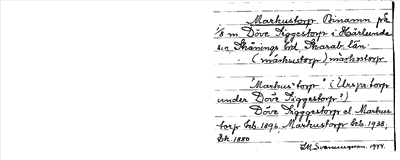 Markustorp Binamn på
1/3 m Döve Siggestorp i Härlunda
sn, Skånings hd, Skarab. län.
(márkustorp) màrkustorp
"Markus' torp" (Urspr. torp
under Döve Siggestorp?)
Döve Siggestorp el Markus
torp beb. 1896. Markustorp beb. 1938,
Ek. 1880
1944.